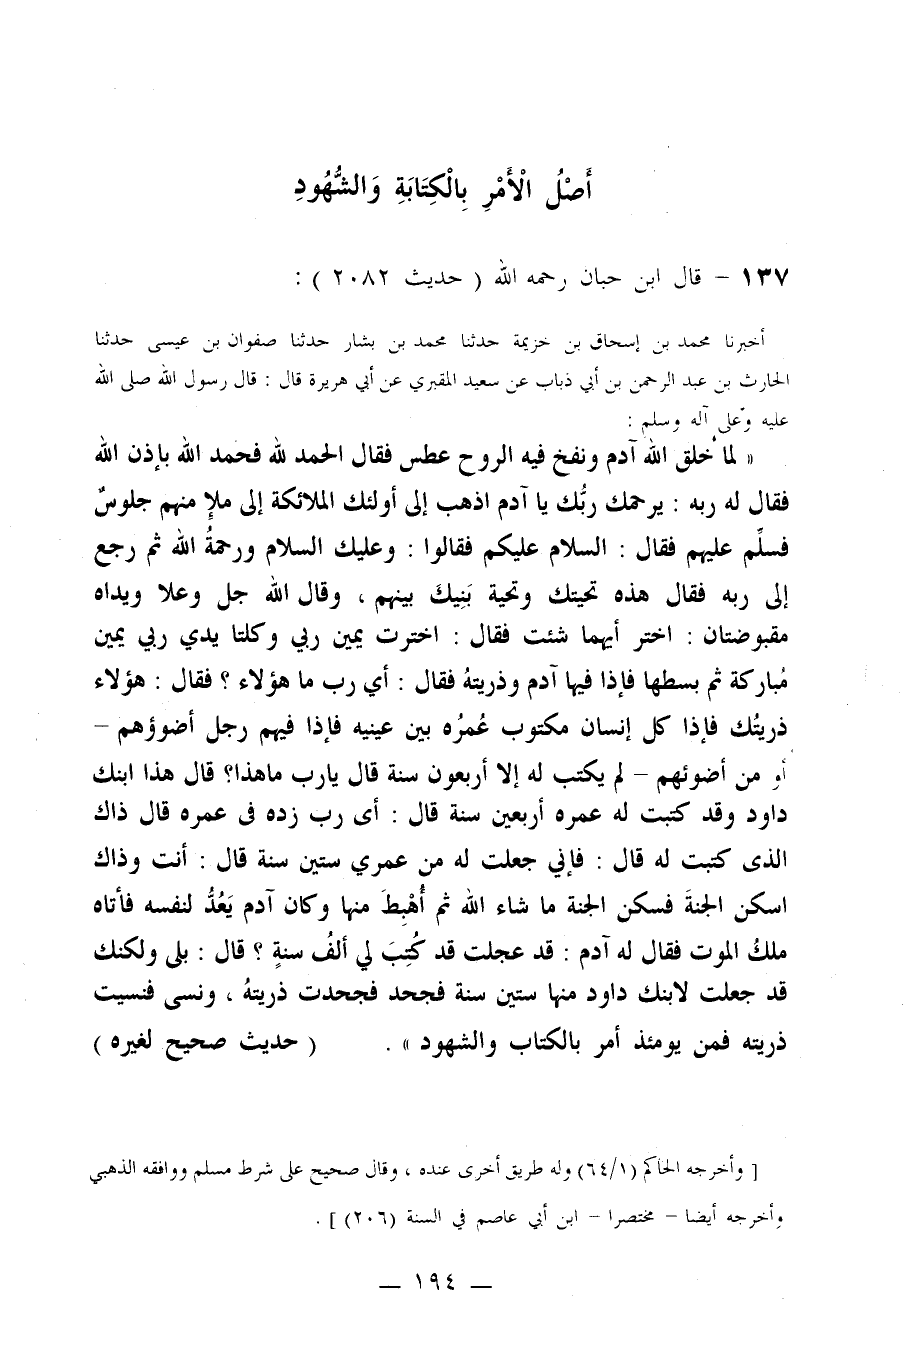 أَصْلُ الْأَمْرِ بِالْكِتَابَةِ وَالشُّهُودِ
١٣٧ – قال ابن حبان رحمه الله ( حديث ٢٠٨٢ ) :
أخبرنا محمد بن إسحاق بن خزيمة حدثنا محمد بن بشار حدثنا صفوان بن عيسى حدثنا
الحارث بن عبد الرحمن بن أبي ذباب عن سعيد المقبري عن أبي هريرة قال : قال رسول الله صلى الله
عليه وعلى آله وسلم :
« لما خلق الله آدم ونفخ فيه الروح عطس فقال الحمد لله فحمد الله بإذن الله
فقال له ربه : يرحمك ربُّك يا آدم اذهب إلى أولئك الملائكة إلى ملإ منهم جلوسٌ
فسلِّم عليهم فقال : السلام عليكم فقالوا : وعليك السلام ورحمةُ الله ثم رجع
إلى ربه فقال هذه تحيتك وتحية بَنِيكَ بينهم ، وقال الله جل وعلا ويداه
مقبوضتان : اختر أيهما شئت فقال : اخترت يمين ربي وكلتا يدي ربي يمين
مُباركة ثم بسطها فإذا فيها آدم وذريتهُ فقال : أي رب ما هؤلاء ؟ فقال : هؤلاء
ذريتُك فإذا كل إنسان مكتوب عُمرُه بين عينيه فإذا فيهم رجل أضوؤهم –
أو من أضوئهم – لم يكتب له إلا أربعون سنة قال يارب ماهذا؟ قال هذا ابنك
داود وقد كتبت له عمره أربعين سنة قال : أى رب زده فى عمره قال ذاك
الذى كتبت له قال : فإني جعلت له من عمري ستين سنة قال : أنت وذاك
اسكن الجنةَ فسكن الجنة ما شاء الله ثم أُهْبِطَ منها وكان آدم يَعُدُّ لنفسه فأتاه
ملكُ الموت فقال له آدم : قد عجلت قد كُتِبَ لي ألفُ سنةٍ ؟ قال : بلى ولكنك
قد جعلت لابنك داود منها ستين سنة فجحد فجحدت ذريتهُ ، ونسى فنسيت
ذريته فمن يومئذ أمر بالكتاب والشهود » . ( حديث صحيح لغيره )
[ وأخرجه الحاكم (٦٤/١) وله طريق أخرى عنده ، وقال صحيح على شرط مسلم ووافقه الذهبي
وأخرجه أيضا – مختصرا – ابن أبي عاصم في السنة (٢٠٦) ] .
— ١٩٤ —